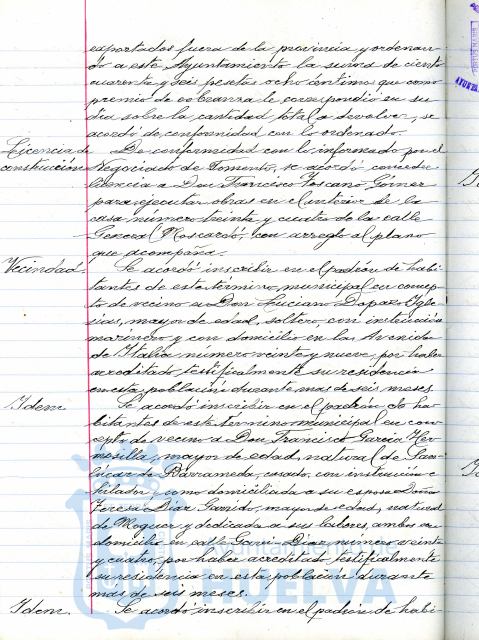 exportados fuera de la provincia y ordenan-
do a este Ayuntamiento la suma de ciento
cuarenta y seis pesetas ocho céntimos que como
premio de cobranza le correspondió en su
día sobre la cantidad total a devolver, se
acordó de conformidad con lo ordenado.
Licencia de construcción
De conformidad con lo informado por el
Negociado de Fomento, se acordó conceder
licencia a Don Francisco Toscano Gómez
para ejecutar obras en el interior de la
casa número treinta y cuatro de la calle
General Moscardó, con arreglo al plano
que acompaña.
Vecindad.
Se acordó inscribir en el padrón de habi-
tantes de este término municipal en concep-
to de vecino a Don Luciano Dapazo Igle-
sias, mayor de edad, soltero, con instrucción
marinero y con domicilio en las Avenida
de Italia número veinte y nueve, por haber
acreditado testificalmente su residencia
en esta población durante mas de seis meses.
Idem.
Se acordó inscribir en el padrón de ha-
bitantes de este término municipal en con-
cepto de vecino a Don Francisco García Her-
mosilla, mayor de edad, natural de San-
lúcar de Barrameda, casado, con instrucción e
hilador y como domiciliada a su esposa Doña
Teresa Díaz Garrido, mayor de edad, natural
de Moguer y dedicada a sus labores, ambos con
domicilio en calle Garci-Díaz número veinte
y cuatro, por haber acreditado testificalmente
su residencia en esta población durante
más de seis meses.
Idem.
Se acordó inscribir en el padrón de habi-
Ayuntamiento de
HUELVA